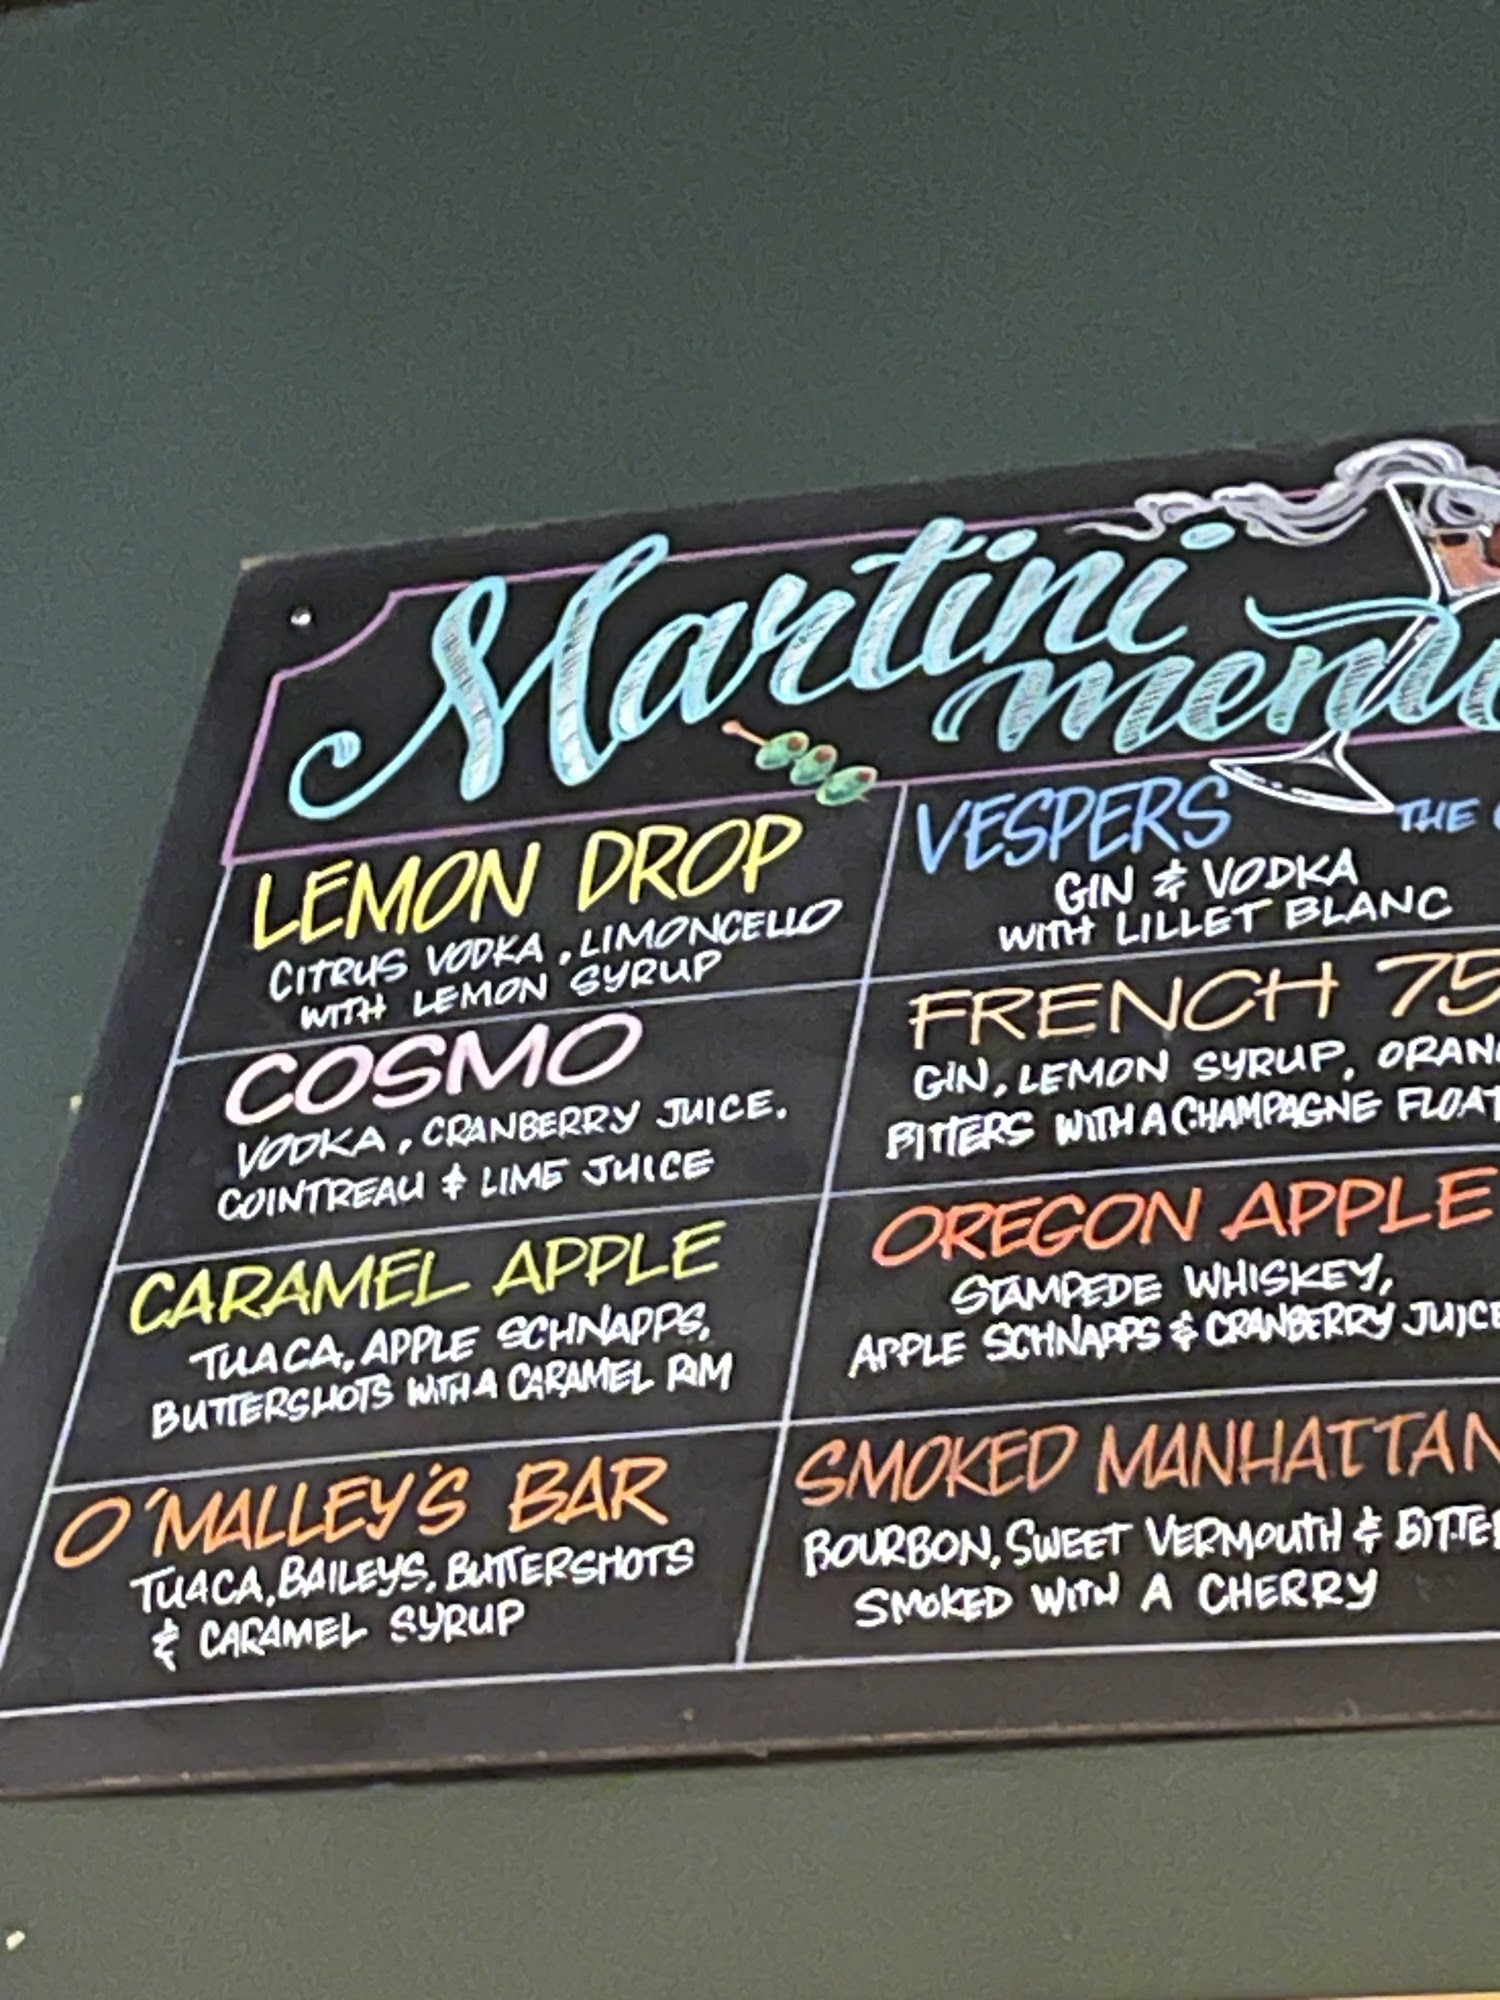 Martini
menu
LEMON DROP
CITRUS VODKA, LIMONCELLO
WITH LEMON SYRUP
COSMO
VODKA, CRANBERRY JUICE,
COINTREAU & LIME JUICE
CARAMEL APPLE
TUACA, APPLE SCHNAPPS,
BUTTERSHOTS WITH A CARAMEL RIM
O'MALLEY'S BAR
TUACA, BAILEYS, BUTTERSHOTS
& CARAMEL SYRUP
VESPERS
GIN & VODKA
WITH LILLET BLANC
FRENCH 75
GIN, LEMON SYRUP, ORAN
BITTERS WITH A CHAMPAGNE FLOAT
OREGON APPLE
STAMPEDE WHISKEY,
APPLE SCHNAPPS & CRANBERRY JUICE
SMOKED MANHATTAN
BOURBON, SWEET VERMOUTH & BITTE
SMOKED WITH A CHERRY
THE